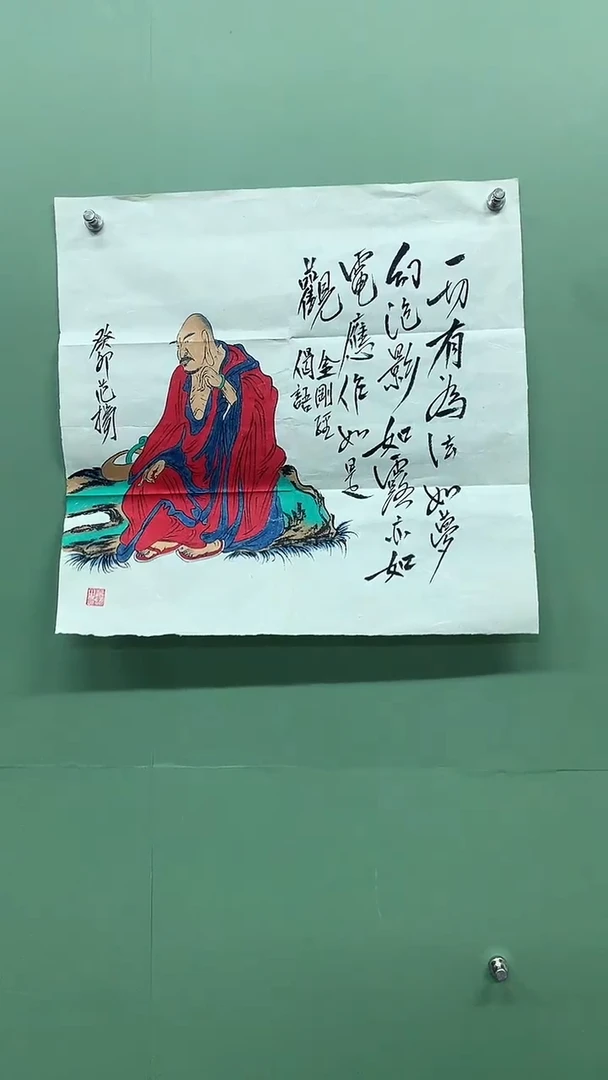 一切有為法如夢
幻泡影如露亦如
電應作如是
觀
金剛經
偈語
癸卯范揚